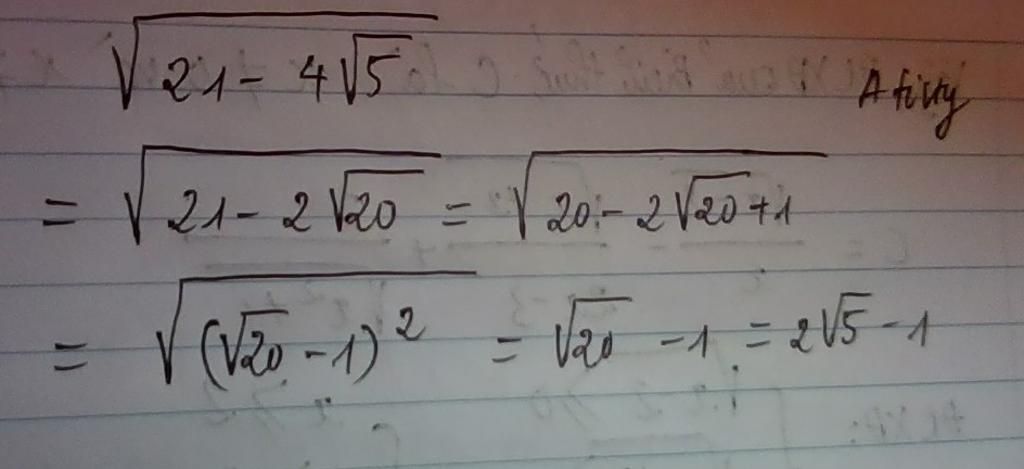 √(21 - 4√5)
= √(21 - 2√20) = √(20 - 2√20 + 1)
= √((√20 - 1)²) = √20 - 1 = 2√5 - 1